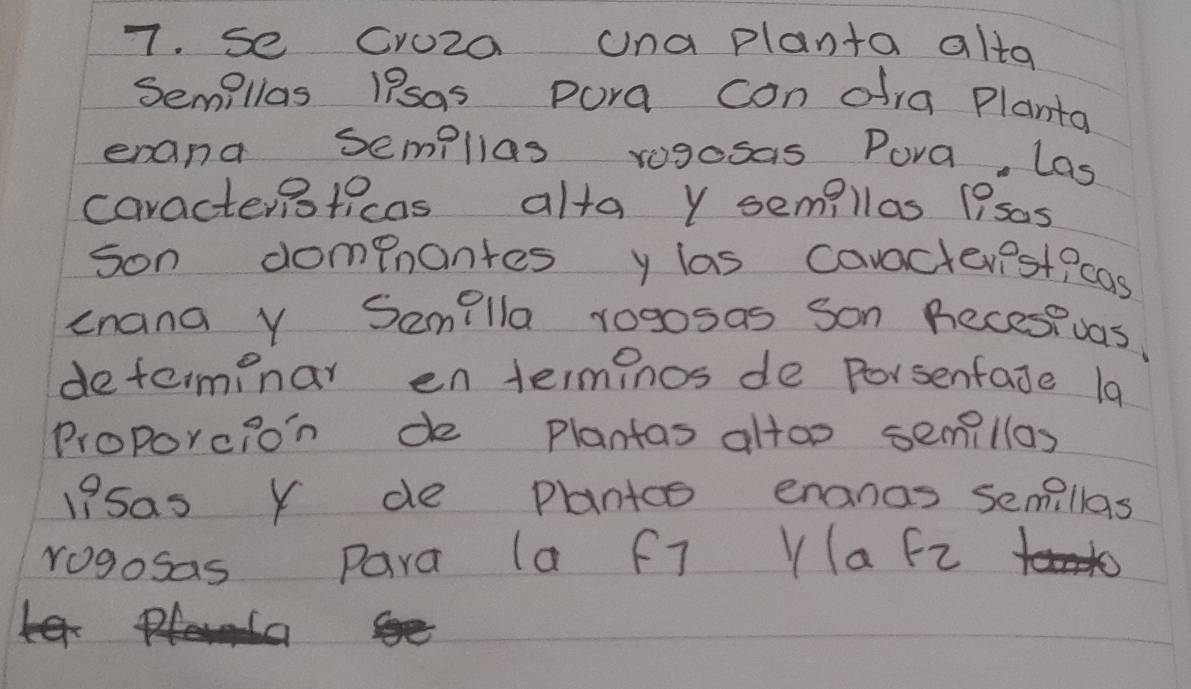 7. Se Cruza una planta alta
Semillas lisas pura con otra Planta
enana semillas rogosas Pura. Las
caracteristicas alta y semillas lisas
son dominantes y las caracteristicas
enana y Semilla rogosas son Recesivas.
determinar en terminos de porsentaje la
proporción de plantas altas semillas
lisas y de plantas enanas semillas
rogosas para la f1 y la f2